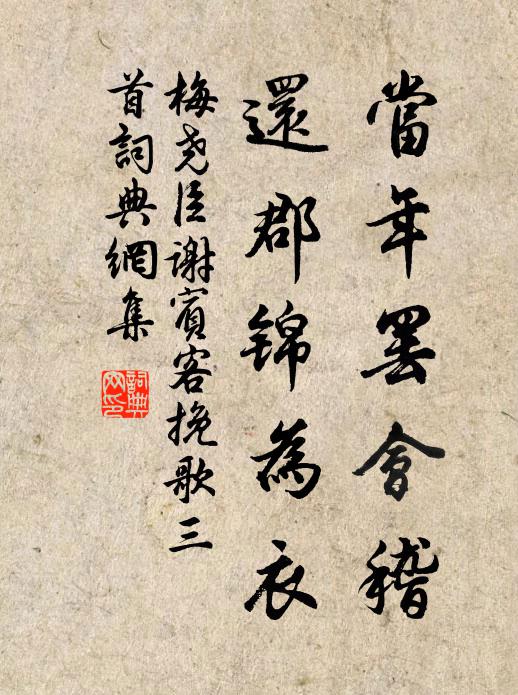 當年罷會稽
還郡錦為衣
梅堯臣謝賓客挽歌三
首詞典網集
詞典
网印